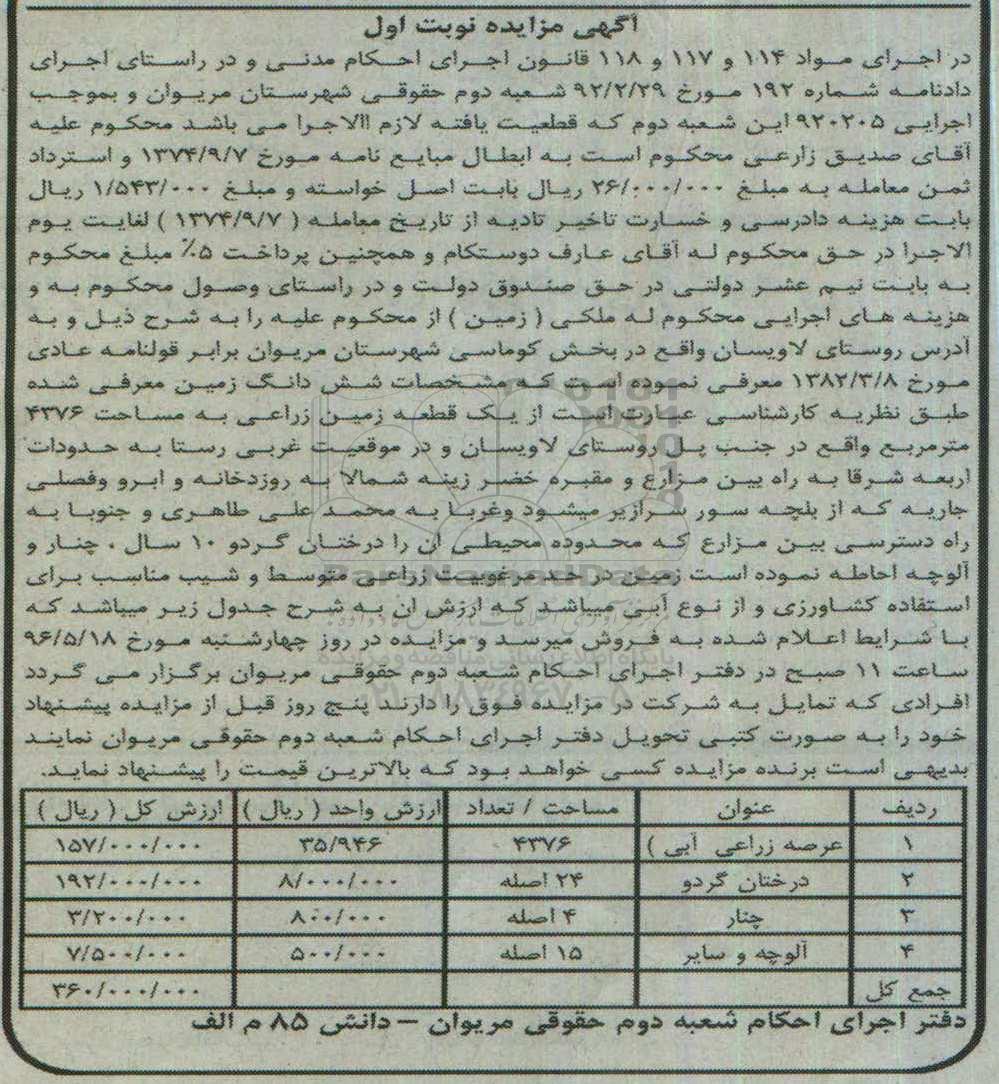 آگهی مزایده نوبت اول
در اجرای مواد ۱۱۴ و ۱۱۷ و ۱۱۸ قانون اجرای احکام مدنی و در راستای اجرای
دادنامه شماره ۱۹۲ مورخ ۹۲/۲/۲۹ شعبه دوم حقوقی شهرستان مریوان و بموجب
اجرایی ۹۲۰۲۰۵ این شعبه دوم که قطعیت یافته لازم االاجرا می باشد محکوم علیه
آقای صدیق زارعی محکوم است به ابطال مبایع نامه مورخ ۱۳۷۴/۹/۷ و استرداد
ثمن معامله به مبلغ ۲۶/۰۰۰/۰۰۰ ریال بابت اصل خواسته و مبلغ ۱/۵۴۳/۰۰۰ ریال
بابت هزینه دادرسی و خسارت تاخیر تادیه از تاریخ معامله ( ۱۳۷۴/۹/۷ ) لغایت یوم
الاجرا در حق محکوم له آقای عارف دوستکام و همچنین پرداخت ۵٪ مبلغ محکوم
به بابت نیم عشر دولتی در حق صندوق دولت و در راستای وصول محکوم به و
هزینه های اجرایی محکوم له ملکی ( زمین ) از محکوم علیه را به شرح ذیل و به
آدرس روستای لاویسان واقع در بخش کوماسی شهرستان مریوان برابر قولنامه عادی
مورخ ۱۳۸۲/۳/۸ معرفی نموده است که مشخصات شش دانگ زمین معرفی شده
طبق نظریه کارشناسی عبارت است از یک قطعه زمین زراعی به مساحت ۴۳۷۶
مترمربع واقع در جنب پل روستای لاویسان و در موقعیت غربی رستا به حدودات
اربعه شرقا به راه بین مزارع و مقبره خضر زینه شمالا به روزدخانه و ابرو وفصلی
جاریه که از بلچه سور سرازیر میشود وغربا به محمد علی طاهری و جنوبا به
راه دسترسی بین مزارع که محدوده محیطی ان را درختان گردو ۱۰ سال ، چنار و
آلوچه احاطه نموده است زمین در حد مرغوبیت زراعی متوسط و شیب مناسب برای
استفاده کشاورزی و از نوع آبی میباشد که ارزش ان به شرح جدول زیر میباشد که
با شرایط اعلام شده به فروش میرسد و مزایده در روز چهارشنبه مورخ ۹۶/۵/۱۸
ساعت ۱۱ صبح در دفتر اجرای احکام شعبه دوم حقوقی مریوان برگزار می گردد
افرادی که تمایل به شرکت در مزایده فوق را دارند پنج روز قبل از مزایده پیشنهاد
خود را به صورت کتبی تحویل دفتر اجرای احکام شعبه دوم حقوقی مریوان نمایند
بدیهی است برنده مزایده کسی خواهد بود که بالاترین قیمت را پیشنهاد نماید.
ردیف عنوان مساحت / تعداد ارزش واحد ( ریال ) ارزش کل ( ریال )
۱ عرصه زراعی آبی ) ۴۳۷۶ ۳۵/۹۴۶ ۱۵۷/۰۰۰/۰۰۰
۲ درختان گردو ۲۴ اصله ۸/۰۰۰/۰۰۰ ۱۹۲/۰۰۰/۰۰۰
۳ چنار ۴ اصله ۸۰۰/۰۰۰ ۳/۲۰۰/۰۰۰
۴ آلوچه و سایر ۱۵ اصله ۵۰۰/۰۰۰ ۷/۵۰۰/۰۰۰
جمع کل ۳۶۰/۰۰۰/۰۰۰
دفتر اجرای احکام شعبه دوم حقوقی مریوان – دانش ۸۵ م الف